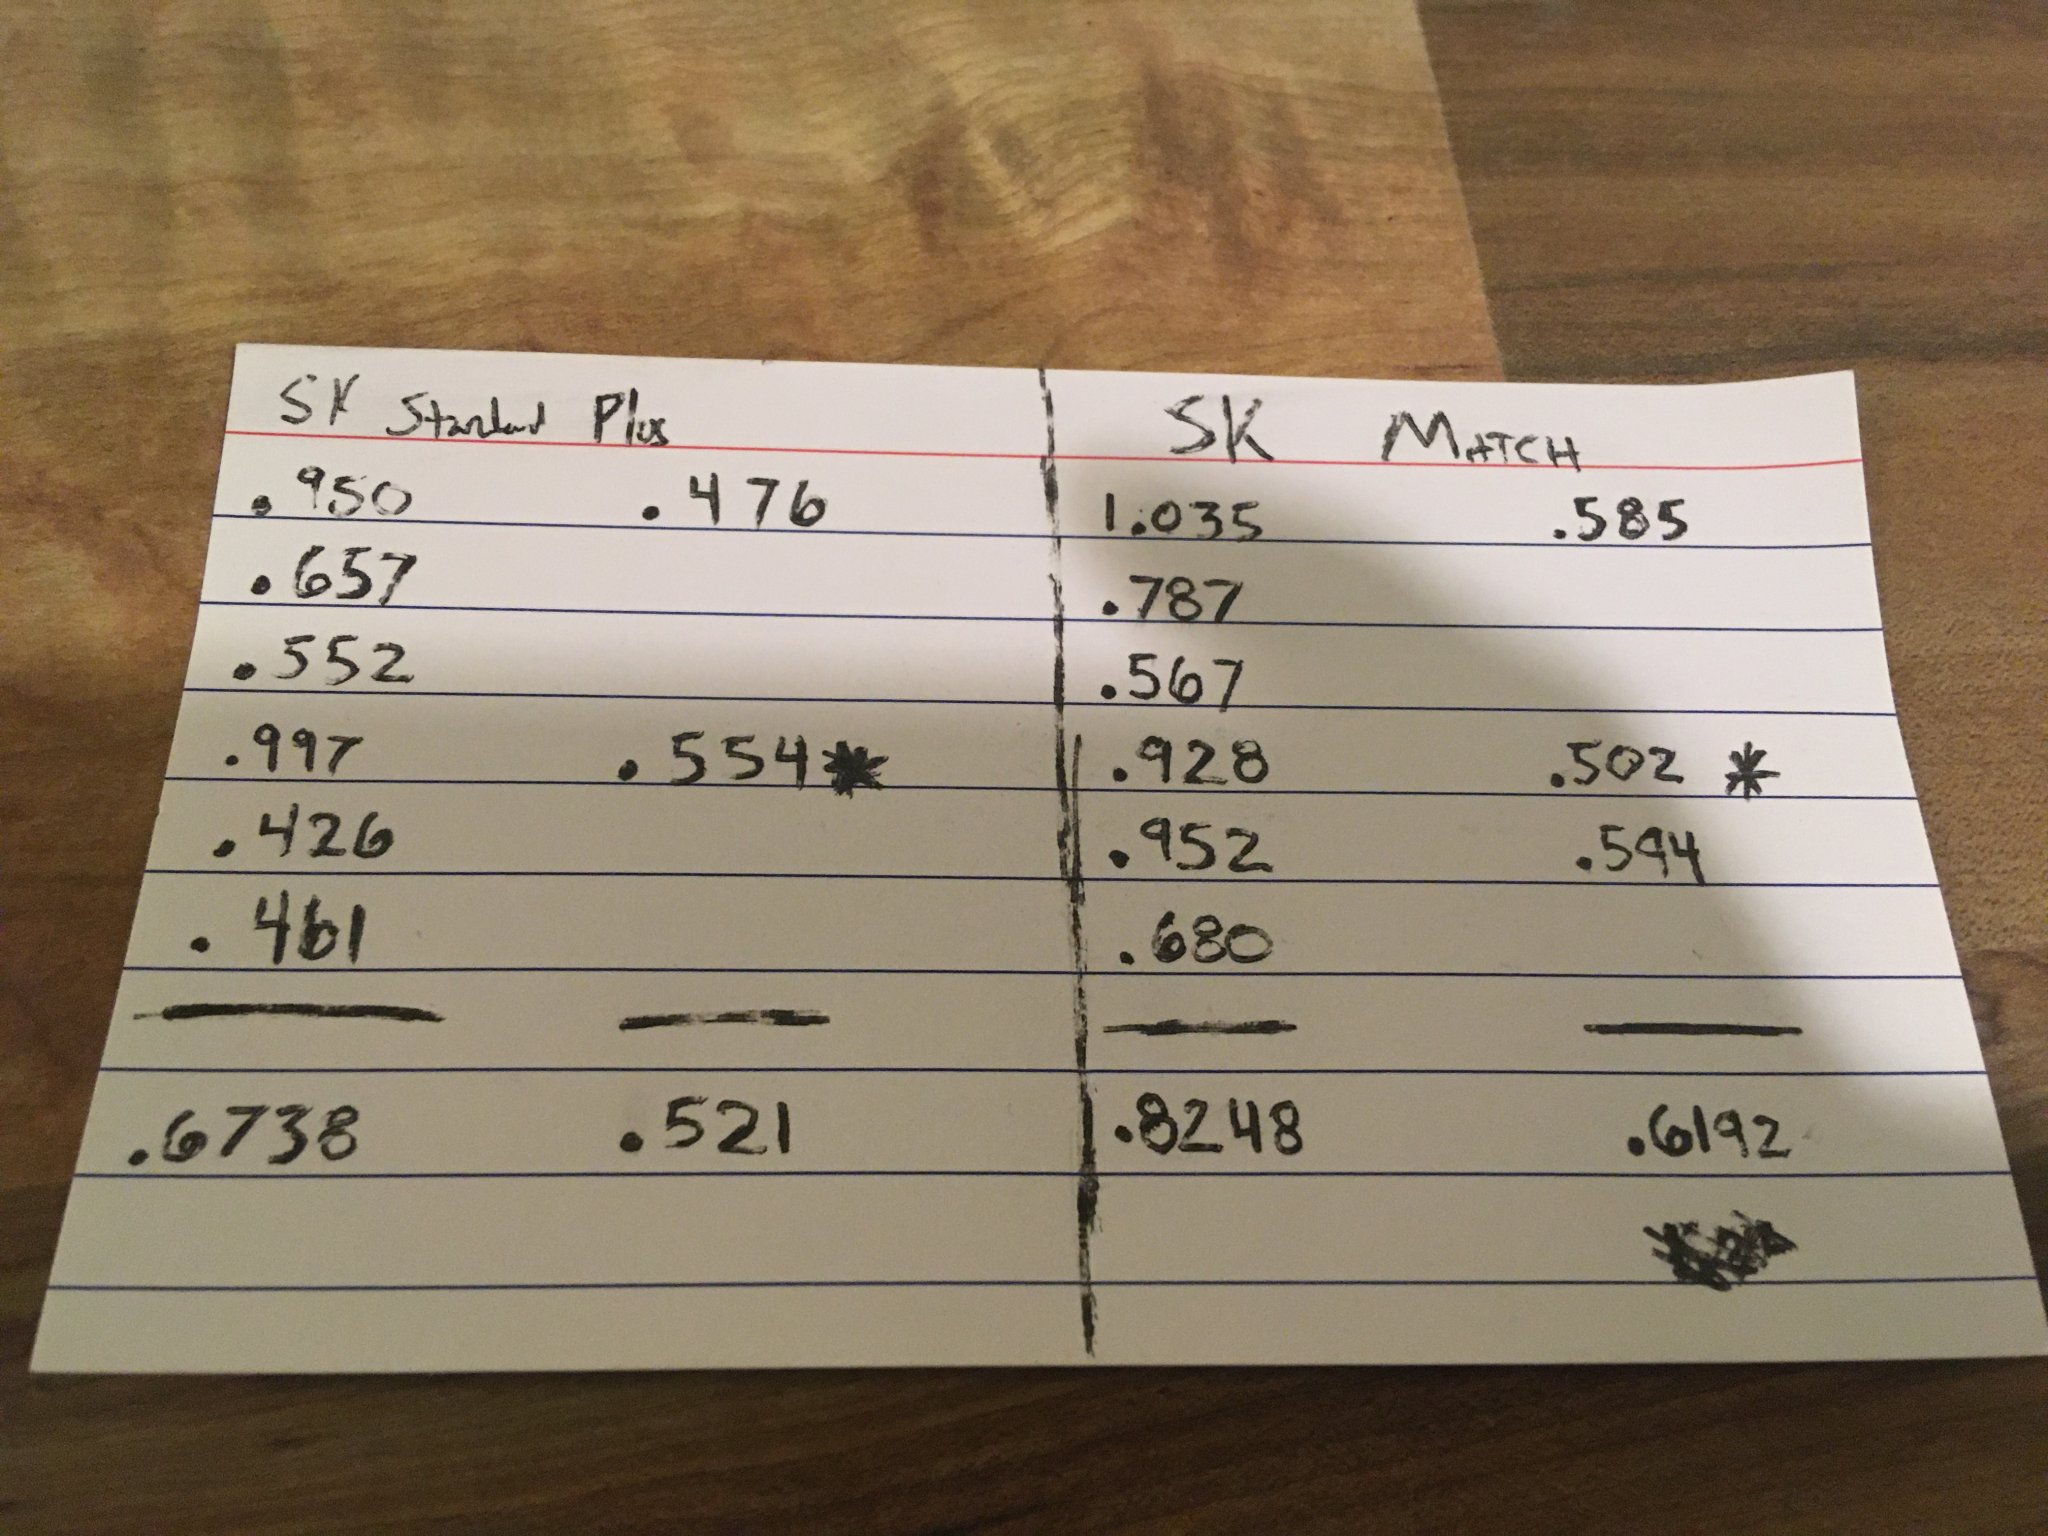 SK Standard Plus SK MATCH
.950 .476 1.035 .585
.657 .787
.552 .567
.997 .554* .928 .502 *
.426 .952 .594
.461 .680
.6738 .521 .8248 .6192